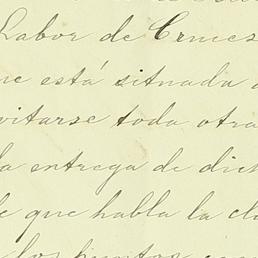 Labor de Cruces
ue está situada
vitarse toda otra
la entrega de dich
de que habla la cl
los puntos